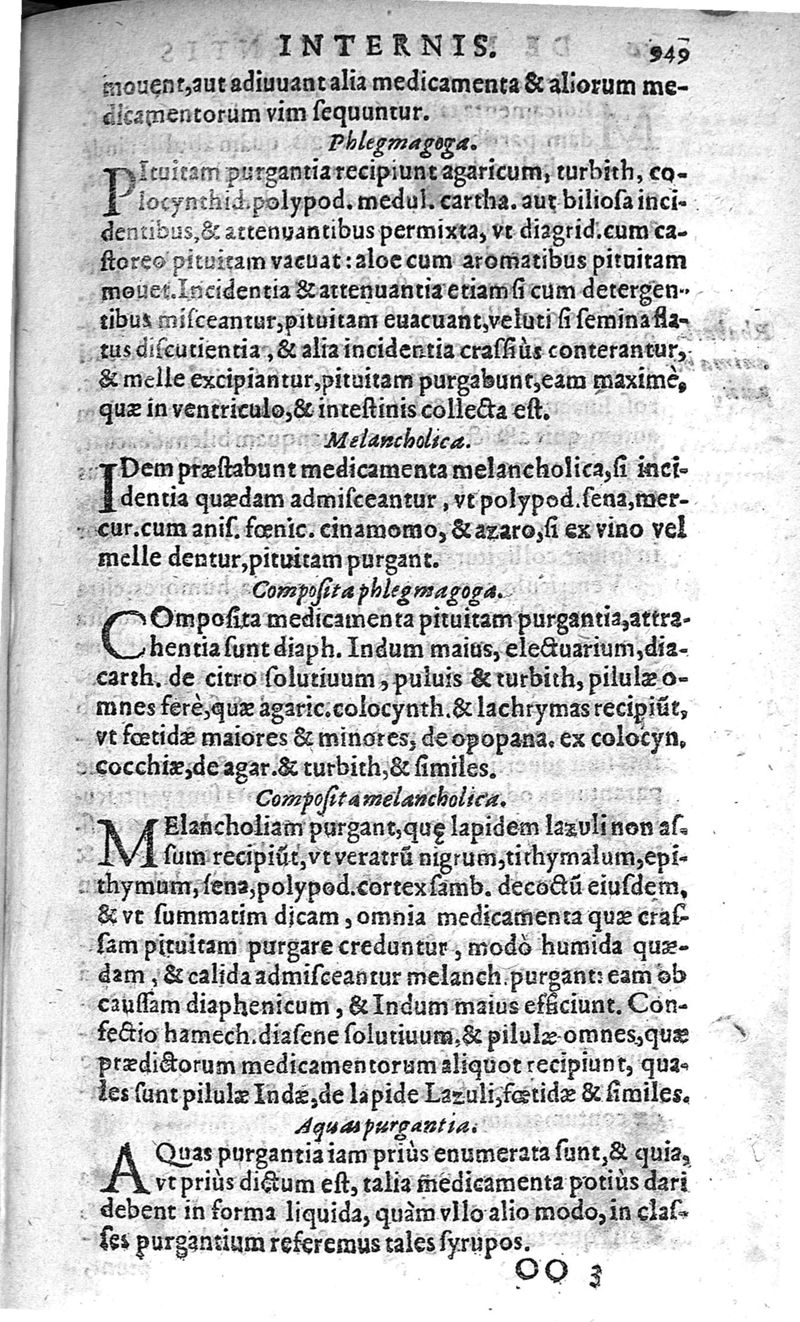 INTERNIS. 949
mouent,aut adiuuant alia medicamenta & aliorum me-
dicamentorum vim ſequuntur.
Phlegmagoga.
PItuitam purgantia recipiunt agaricum, turbith, co-
locynthid.polypod. medul. cartha. aut bilioſa inci-
dentibus,& attenuantibus permixta, vt diagrid.cum ca-
ſtoreo pituitam vacuat : aloe cum aromatibus pituitam
mouet.Incidentia & attenuantia etiam ſi cum detergen-
tibus miſceantur,pituitam euacuant,veluti ſi ſemina fla-
tus diſcutientia , & alia incidentia craſſiùs conterantur,
& melle excipiantur,pituitam purgabunt,eam maximè,
quæ in ventriculo,& inteſtinis collecta eſt.
Melancholica.
IDem præſtabunt medicamenta melancholica,ſi inci-
dentia quædam admiſceantur , vt polypod.ſena,mer-
cur.cum aniſ. fœnic. cinamomo, & azaro,ſi ex vino vel
melle dentur,pituitam purgant.
Compoſita phlegmagoga.
COmpoſita medicamenta pituitam purgantia,attra-
hentia ſunt diaph. Indum maius, electuarium,dia-
carth. de citro ſolutiuum , puluis & turbith, pilulæ o-
mnes ferè,quæ agaric.colocynth.& lachrymas recipiũt,
vt fœtidæ maiores & minores, de opopana. ex colocyn.
cocchiæ,de agar.& turbith,& ſimiles.
Compoſita melancholica.
MElancholiam purgant,quę lapidem lazuli non aſ-
ſum recipiũt,vt veratrũ nigrum,tithymalum,epi-
thymum, ſena,polypod.cortex ſamb. decoctũ eiuſdem,
& vt ſummatim dicam , omnia medicamenta quæ craſ-
ſam pituitam purgare creduntur , modò humida quæ-
dam , & calida admiſceantur melanch.purgant: eam ob
cauſſam diaphenicum , & Indum maius efficiunt. Con-
fectio hamech.diaſene ſolutiuum,& pilulæ omnes,quæ
prædictorum medicamentorum aliquot recipiunt, qua-
les ſunt pilulæ Indæ,de lapide Lazuli,fœtidæ & ſimiles.
Aquas purgantia.
AQuas purgantia iam priùs enumerata ſunt,& quia,
vt priùs dictum eſt, talia medicamenta potiùs dari
debent in forma liquida, quàm vllo alio modo, in claſ-
ſes purgantium referemus tales ſyrupos.
OO 3